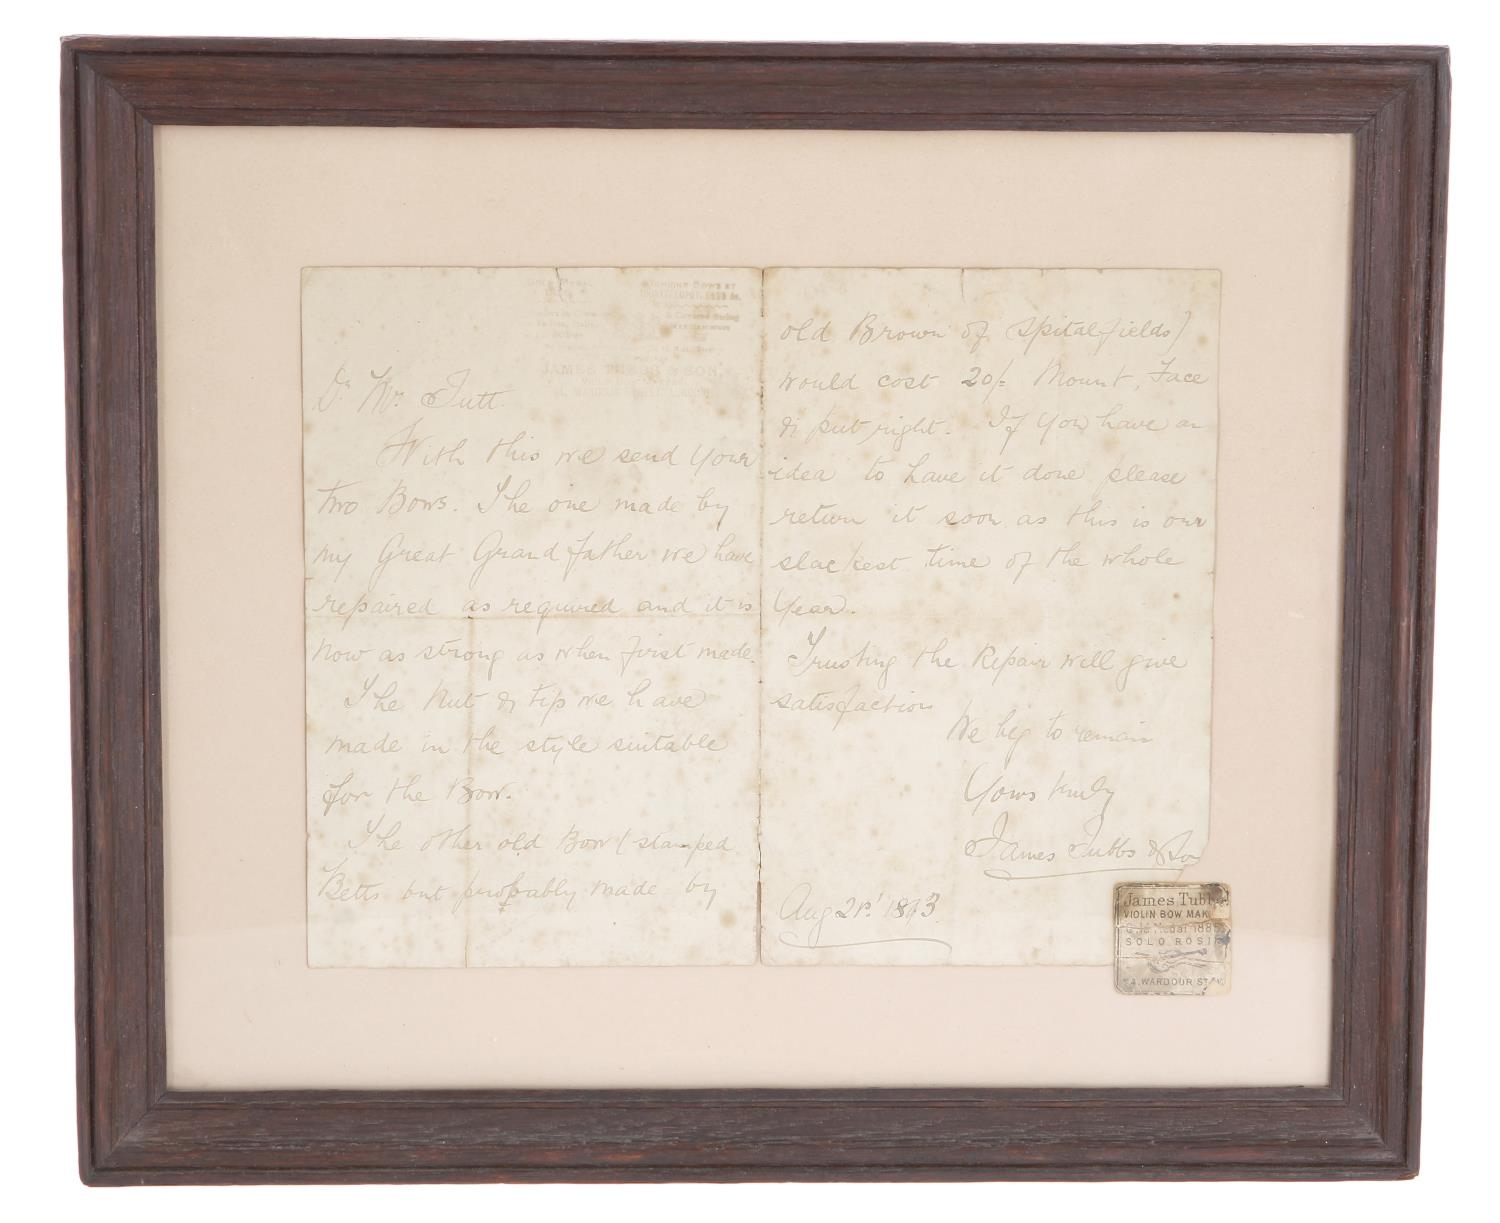 JAMES TUBBS & SON,
Dr. Mr. Tutt.
With this we send your
two Bows. The one made by
my Great Grandfather we have
repaired as required and it is
now as strong as when first made.
The Nut & tip we have
made in the style suitable
for the Bow.
The other old Bow (stamped
Betts but probably made by
old Brown of Spitalfields)
would cost 20/= Mount, Face
& put right. If you have an
idea to have it done please
return it soon as this is our
slackest time of the whole
Year.
Trusting the Repair will give
satisfaction
We beg to remain
Yours truly
James Tubbs & Son
Aug 21st
James Tubbs
VIOLIN BOW MAK
Gold Medal 1885
SOLO ROSIN
94, WARDOUR ST. W.